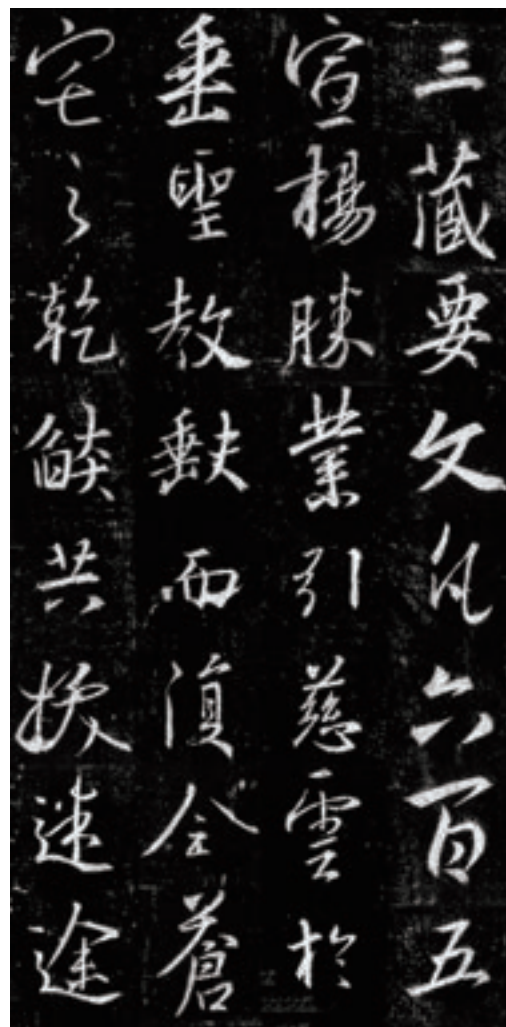 三藏要文凡六百五
宣楊勝業引慈雲於
垂聖教缺而復全蒼
宅之乾燄共拔迷途